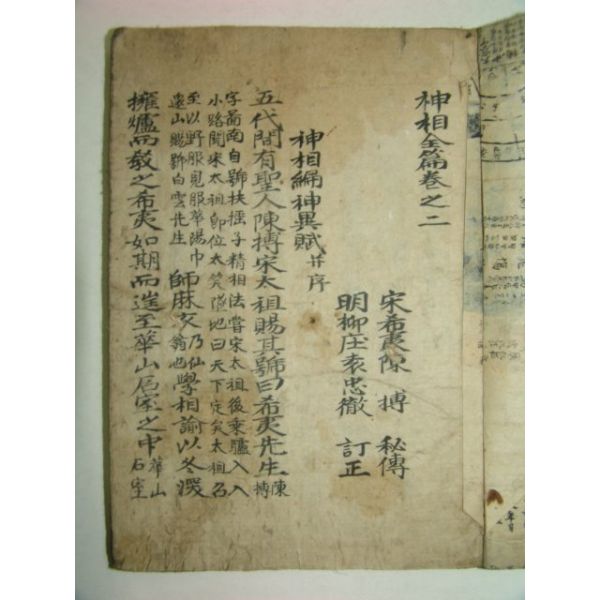 神相全篇卷之二
宋希夷陳搏秘傳
明柳庄袁忠徹訂正
神相編神異賦 并序
五代間有聖人陳搏宋太祖賜其號曰希夷先生 陳搏
字啚南自號扶搖子精相法嘗宋太祖後乘驢入
小路聞宋太祖卽位大笑墜地曰天下定矣太祖召
至以野服見服華陽巾
還山賜號白雲先生
師麻衣 乃仙翁也 學相諭以冬深
擁爐而敎之希夷如期而迬至華山石室之中 華山石室